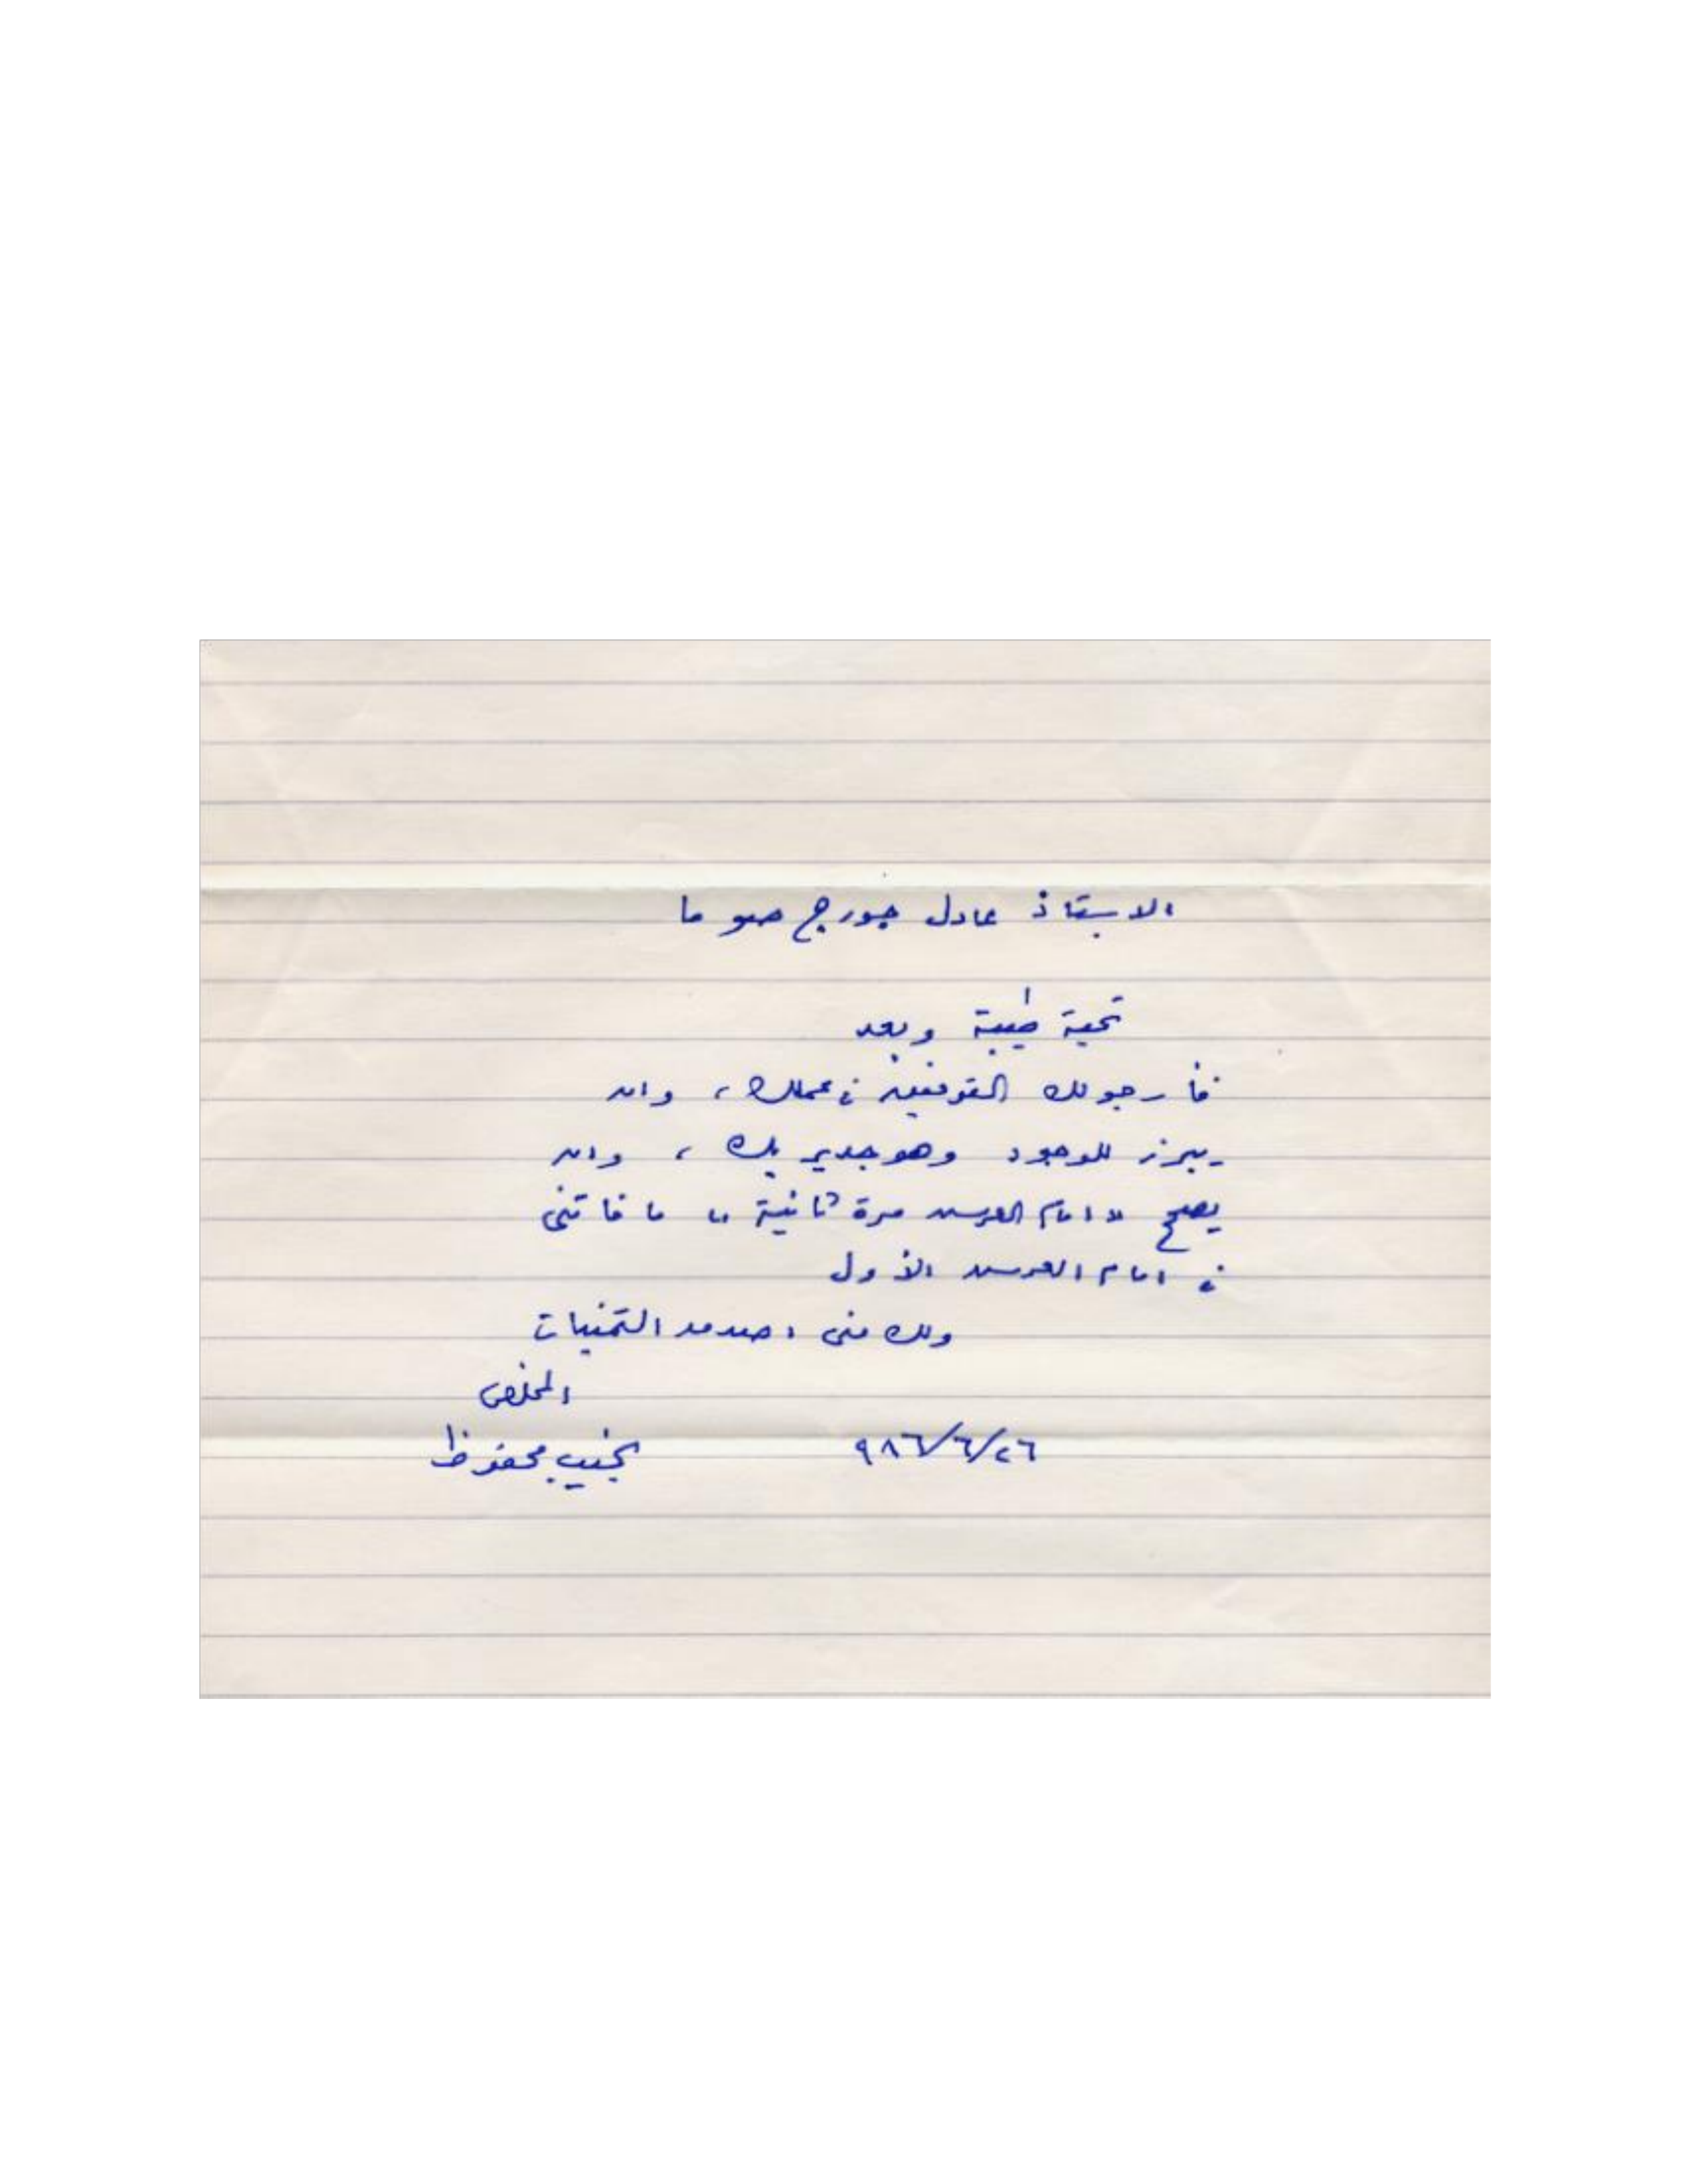 الاستاذ عادل جورج صوما
تحية طيبة وبعد
فأرجو لك التوفيق فى عملك، وان
يبرز للوجود وهو جدير بك، وان
يصلح لا امام العرب مرة ثانية ما فاتنى
فى امام العرب الأول
ولك منى اصدق التمنيات
المخلص
نجيب محفوظ
٩٨٦/٦/٢٦